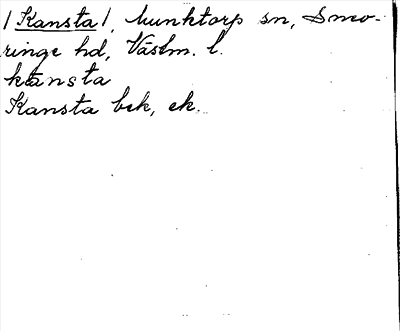 /Kansta/, Munktorp sn, Snev-
ringe hd, Västm. l.
kansta
Kansta bek, ek.